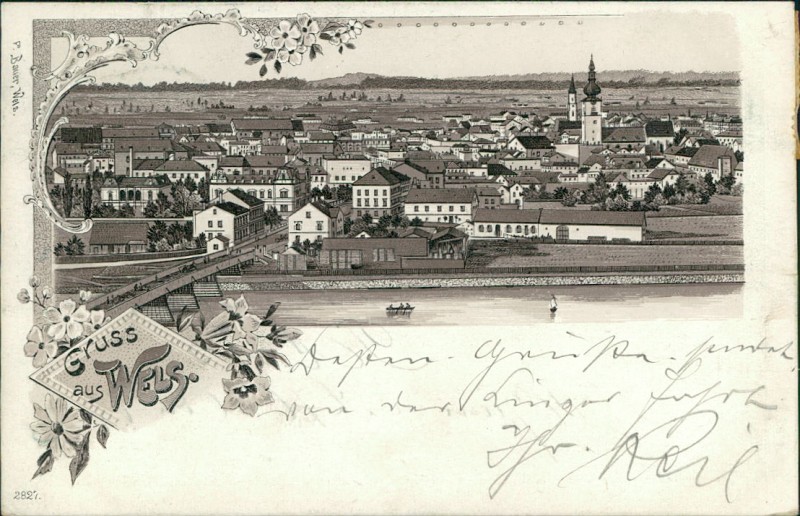 P. Bauer, Wels.
Gruss
aus WELS.
Besten Grüße sendet
von der Linzer Fahrt
Ihr Keil
2827.